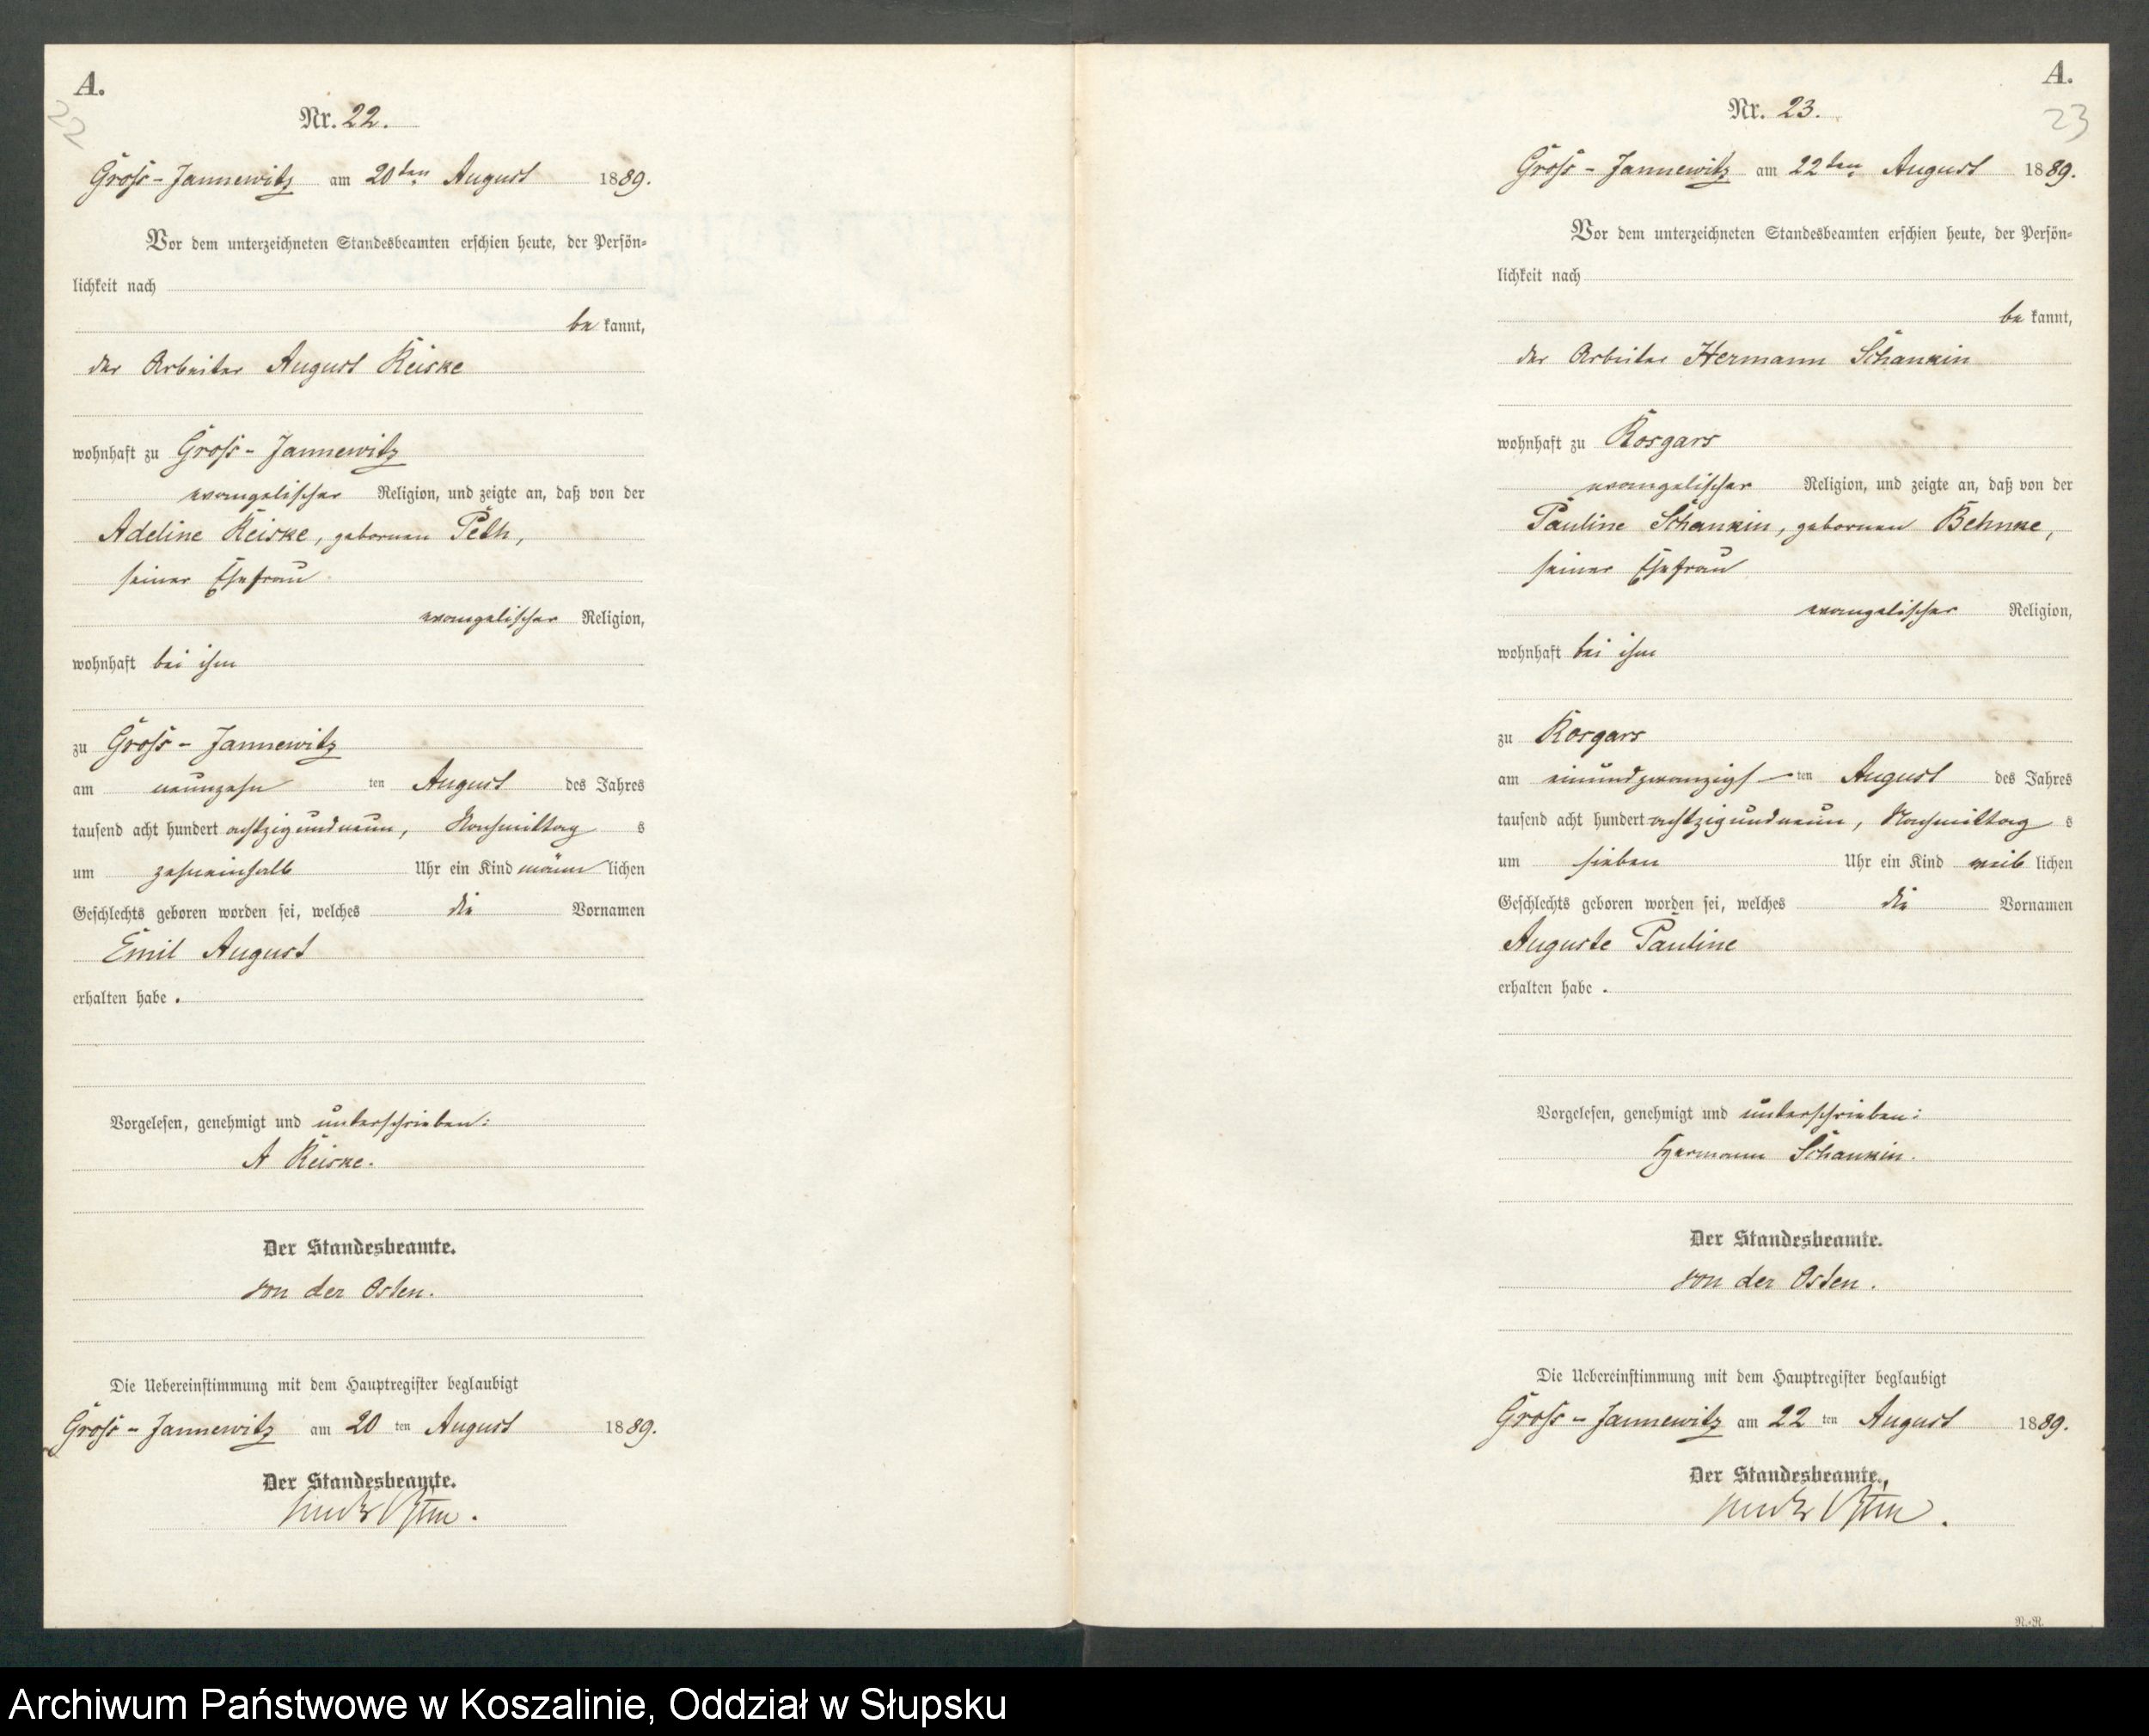 A.
22
Nr. 22.
Gross-Jannewitz am 20ten August 1889.
Vor dem unterzeichneten Standesbeamten erschien heute, der Persön-
lichkeit nach
be kannt,
der Arbeiter August Keiske
wohnhaft zu Gross-Jannewitz
evangelischer Religion, und zeigte an, daß von der
Adeline Keiske, gebornen Peth,
seiner Ehefrau
evangelischer Religion,
wohnhaft bei ihm
zu Gross-Jannewitz
am neunzehn ten August des Jahres
tausend acht hundert achtzigundneun, Nachmittag s
um zehneinhalb Uhr ein Kind männ lichen
Geschlechts geboren worden sei, welches die Vornamen
Emil August
erhalten habe .
Vorgelesen, genehmigt und unterschrieben:
A Keiske.
Der Standesbeamte.
von der Osten.
Die Uebereinstimmung mit dem Hauptregister beglaubigt
Gross-Jannewitz am 20 ten August 1889.
Der Standesbeamte.
von der Osten.
A.
23
Nr. 23.
Gross-Jannewitz am 22ten August 1889.
Vor dem unterzeichneten Standesbeamten erschien heute, der Persön-
lichkeit nach
be kannt,
der Arbeiter Hermann Schankin
wohnhaft zu Rosgars
evangelischer Religion, und zeigte an, daß von der
Pauline Schankin, gebornen Behnke,
seiner Ehefrau
evangelischer Religion,
wohnhaft bei ihm
zu Rosgars
am einundzwanzigst ten August des Jahres
tausend acht hundert achtzigundneun, Nachmittag s
um sieben Uhr ein Kind weib lichen
Geschlechts geboren worden sei, welches die Vornamen
Auguste Pauline
erhalten habe .
Vorgelesen, genehmigt und unterschrieben:
Hermann Schankin.
Der Standesbeamte.
von der Osten.
Die Uebereinstimmung mit dem Hauptregister beglaubigt
Gross-Jannewitz am 22 ten August 1889.
Der Standesbeamte.
von der Osten.
R.-R.
Archiwum Państwowe w Koszalinie, Oddział w Słupsku